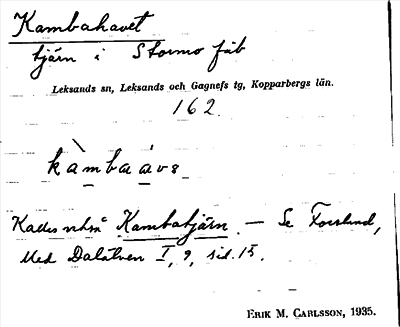 Kambahavet
tjärn i Stormo fäb
Leksands sn, Leksands och Gagnefs tg, Kopparbergs län.
162.
kàmbaávs
Kallas också Kambatjärn. — Se Forslund,
Med Dalälven I, 9, sid. 15.
ERIK M. CARLSSON, 1935.